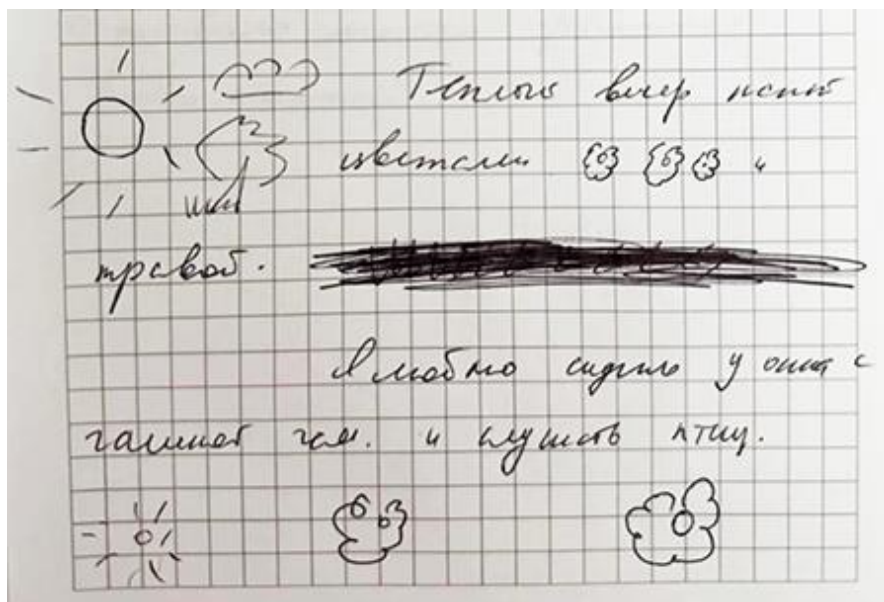 Теплый вечер пахнет
цветами и
травой.
Я люблю сидеть у окна с
чашкой чая. и слушать птиц.